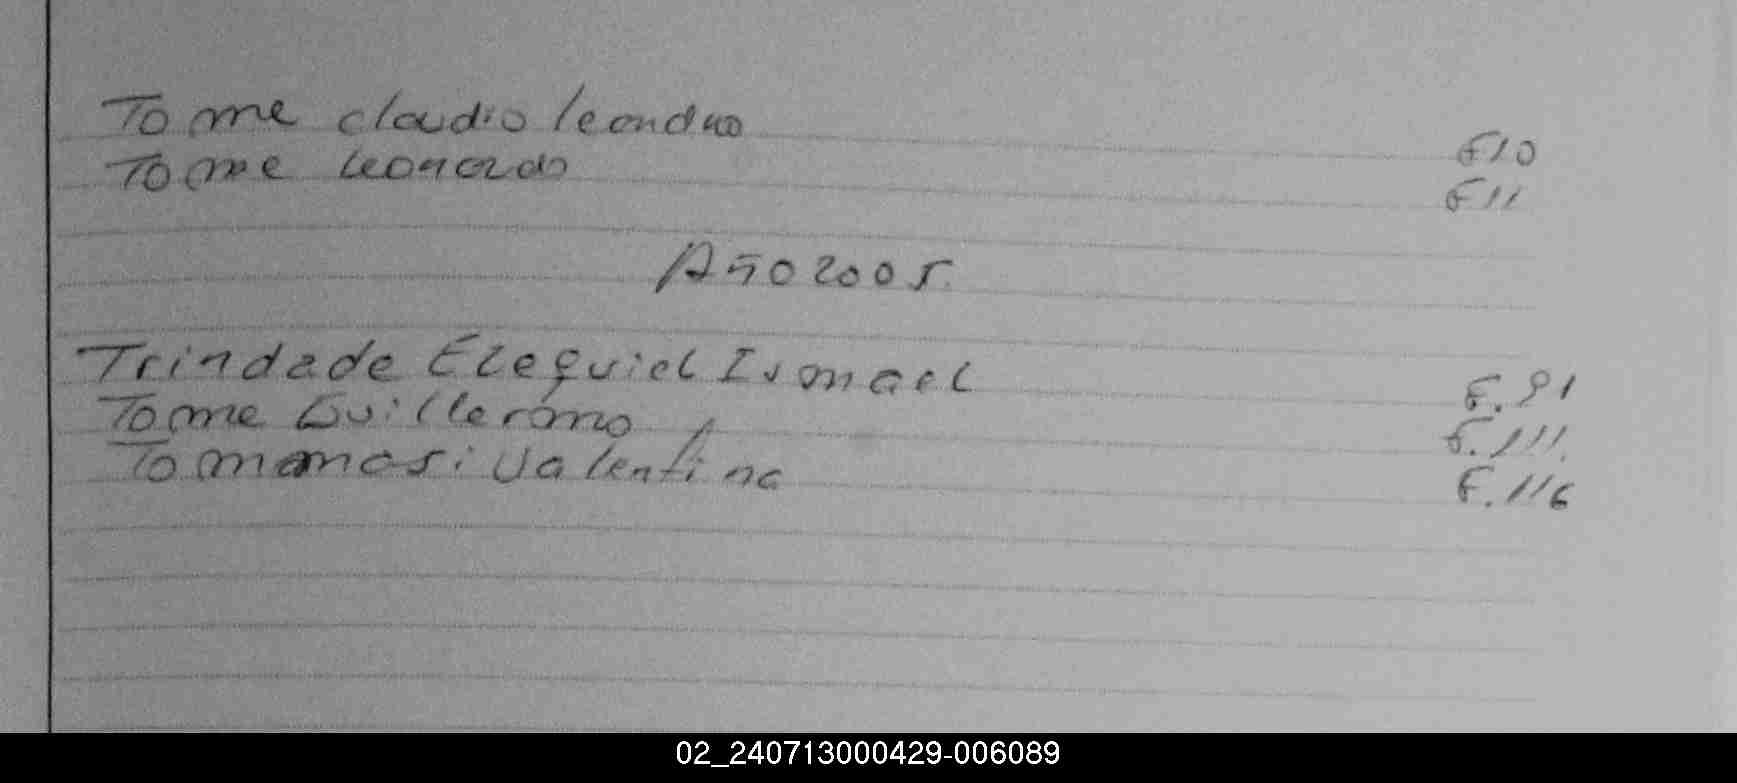 Tome claudio leandro F10
Tome Leonardo F11
Año 2005.
Trindade Ezequiel Ismael F.91
Tome Guillermo F.111.
Tomamasi Valentina F.116
02_240713000429-006089